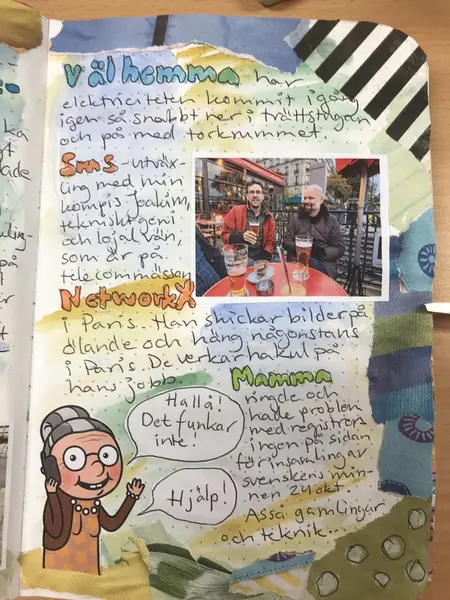 Väl hemma har
elektriciteten kommit igång
igen så snabbt ner i tvättstugan
och på med torkrummet.
Sms-utväx-
ling med min
kompis Joakim,
tekniskt geni
och lojal vän,
som är på
telecommässan
NetworkX
i Paris. Han skickar bilder på
ölande och häng någonstans
i Paris. De verkar ha kul på
hans jobb.
Mamma
ringde och
hade problem
med registrer-
ingen på sidan
för insamling av
svenskens min-
nen 24 okt.
Asså gamlingar
och teknik...
Hallå!
Det funkar
inte!
Hjälp!